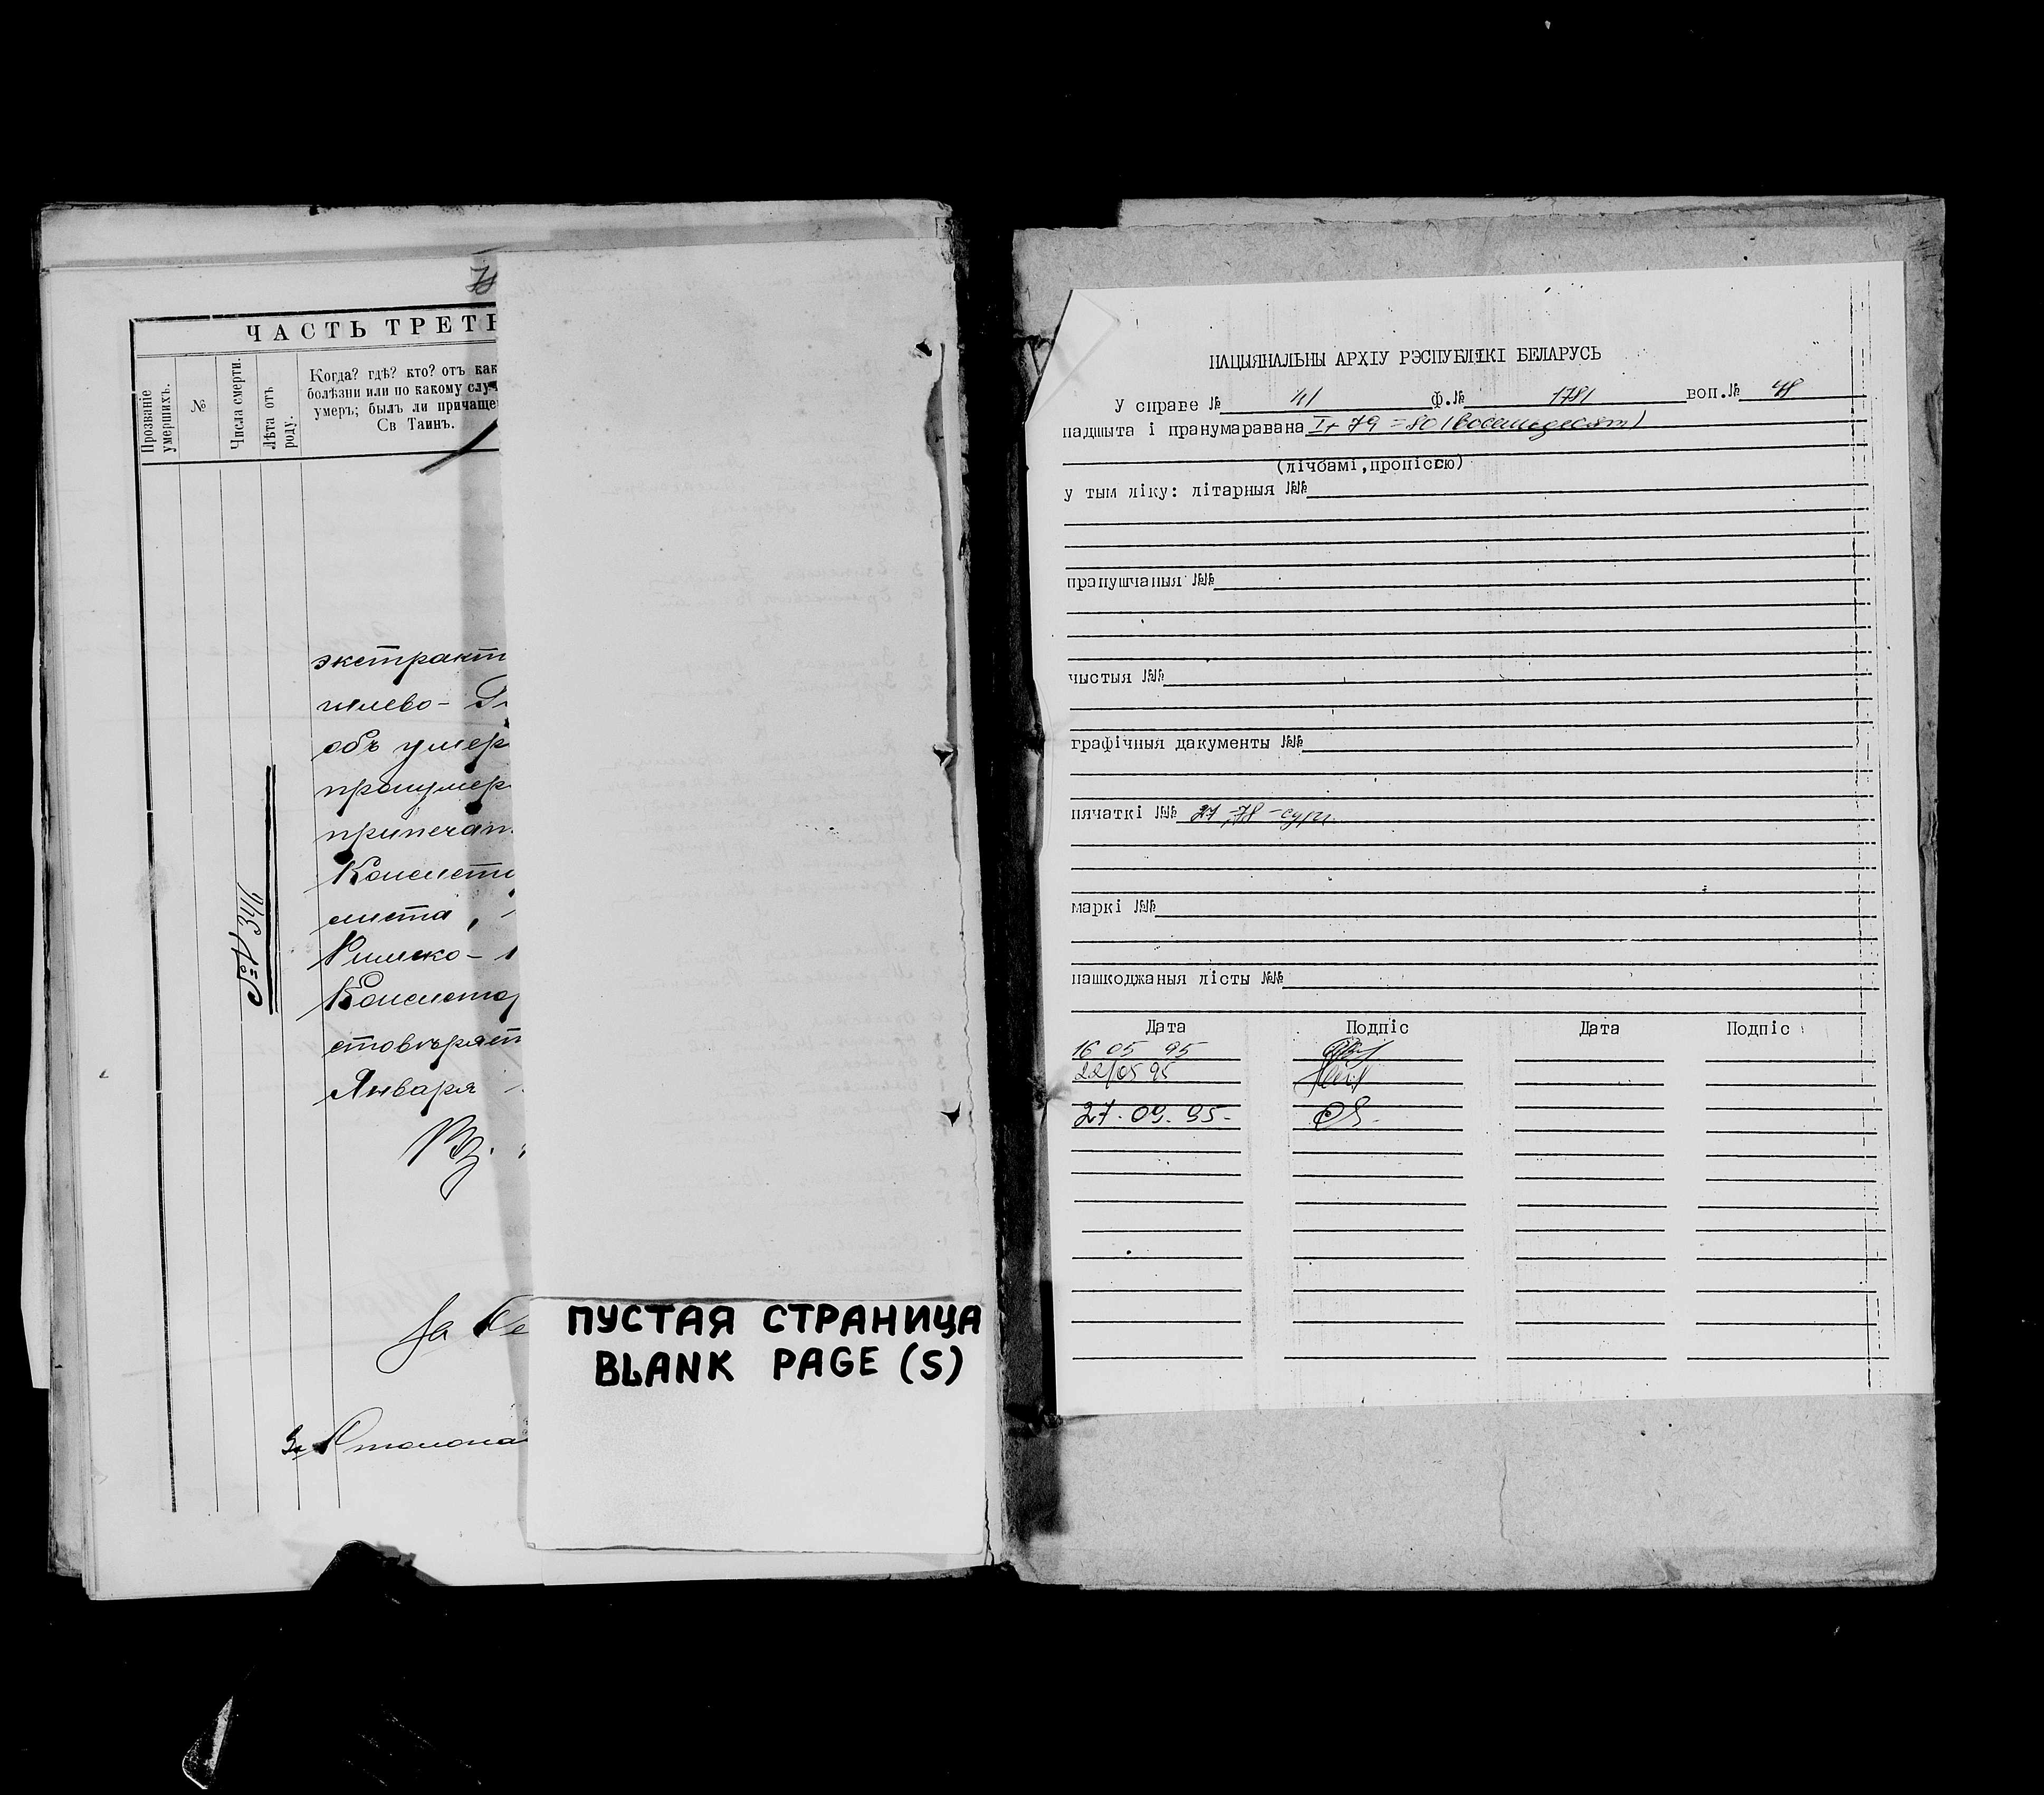 ЧАСТЬ ТРЕТЬ
Прозваніе умершихъ.
№
Числа смерти.
Лѣта отъ роду.
Когда? гдѣ? кто? отъ как
болѣзни или по какому случ
умеръ; былъ ли причаще
Св Таинъ.
№ 346
экстракт
гилево-
объ умер
пронумер
припечат
Консисто
листа,
Римско-
Консистор
стовѣряет
Января
За
ПУСТАЯ СТРАНИЦА
BLANK PAGE (S)
НАЦЫЯНАЛЬНЫ АРХІУ РЭСПУБЛІКІ БЕЛАРУСЬ
У справе № 41 ф.№ 1781 воп.№ 48
падшыта і пранумаравана I+79=80 (восемьдесят)
(лічбамі,пропіссю)
у тым ліку: літарныя №№
прапушчаныя №№
чыстыя №№
графічныя дакументы №№
пячаткі №№ 27,78-сург.
маркі №№
пашкоджаныя лісты №№
Дата Подпіс Дата Подпіс
16 05 95
22/05 95
27.09.95-